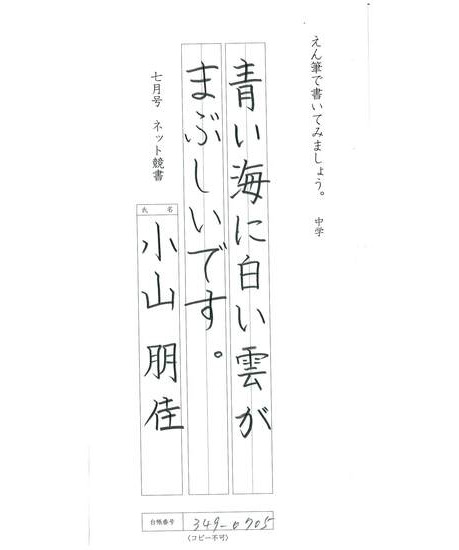 えん筆で書いてみましょう。 中学
青い海に白い雲が
まぶしいです。
七月号 ネット競書
氏名
小山 朋佳
台帳番号
349-0705
(コピー不可)